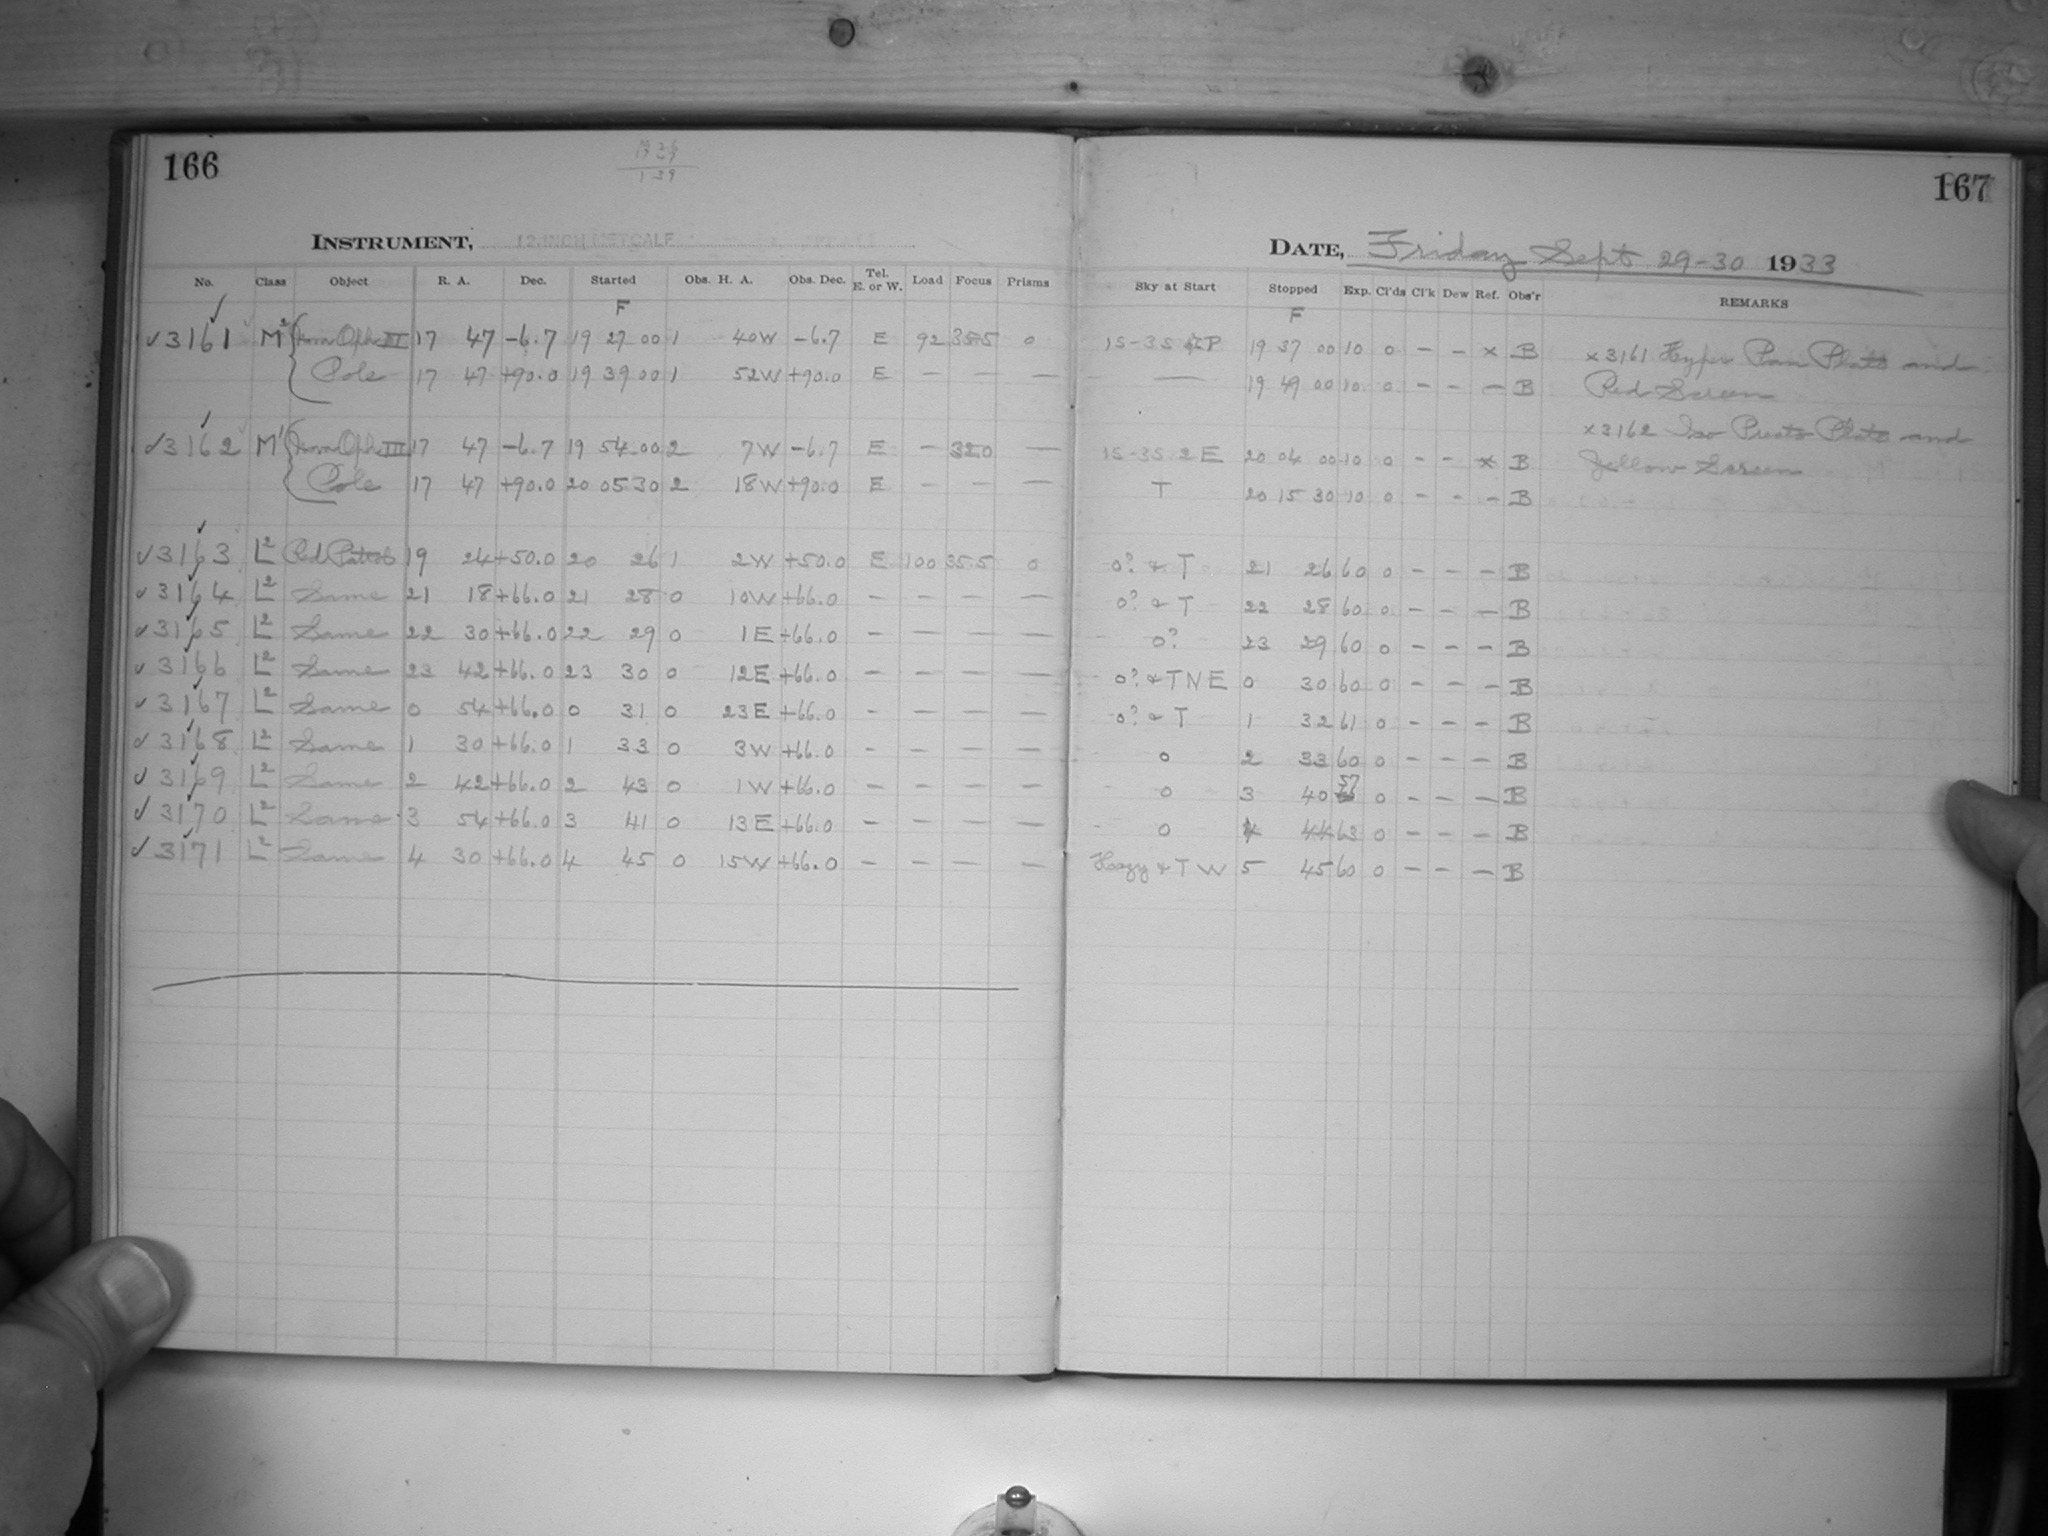 166
17 26
17 47
1 39
INSTRUMENT, 12-INCH METCALF
No. Class Object R. A. Dec. Started Obs. H. A. Obs. Dec. Tel. E. or W. Load Focus Prisms
F
3161 M² Nova Oph III 17 47 -6.7 19 27 00 1 40W -6.7 E 92 355 0
Pole 17 47 +90.0 19 39 00 1 52W +90.0 E — — —
3162 M¹ Nova Oph III 17 47 -6.7 19 54 00 2 7W -6.7 E — 320 —
Pole 17 47 +90.0 20 05 30 2 18W +90.0 E — — —
3163 L² Red Patrol 19 24 +50.0 20 26 1 2W +50.0 E 100 355 0
3164 L² Same 21 18 +66.0 21 28 0 10W +66.0 — — — —
3165 L² Same 22 30 +66.0 22 29 0 1E +66.0 — — — —
3166 L² Same 23 42 +66.0 23 30 0 12E +66.0 — — — —
3167 L² Same 0 54 +66.0 0 31 0 23E +66.0 — — — —
3168 L² Same 1 30 +66.0 1 33 0 3W +66.0 — — — —
3169 L² Same 2 42 +66.0 2 43 0 1W +66.0 — — — —
3170 L² Same 3 54 +66.0 3 41 0 13E +66.0 — — — —
3171 L² Same 4 30 +66.0 4 45 0 15W +66.0 — — — —
167
DATE, Friday Sept 29-30 1933
Sky at Start Stopped Exp. Cl'ds Cl'k Dew Ref. Obs'r REMARKS
F
1S-3S P 19 37 00 10 0 — — x B x3161 Hyper Pan Plate and
— 19 49 00 10 0 — — — B Red Screen
x3162 Iso Presto Plate and
1S-3S 2E 20 04 00 10 0 — — x B Yellow Screen
T 20 15 30 10 0 — — — B
0? & T 21 26 60 0 — — — B
0? & T 22 28 60 0 — — — B
0? 23 29 60 0 — — — B
0? & T N E 0 30 60 0 — — — B
0? & T 1 32 61 0 — — — B
0 2 33 60 0 — — — B
0 3 40 57 0 — — — B
0 4 44 63 0 — — — B
Hazy & T W 5 45 60 0 — — — B